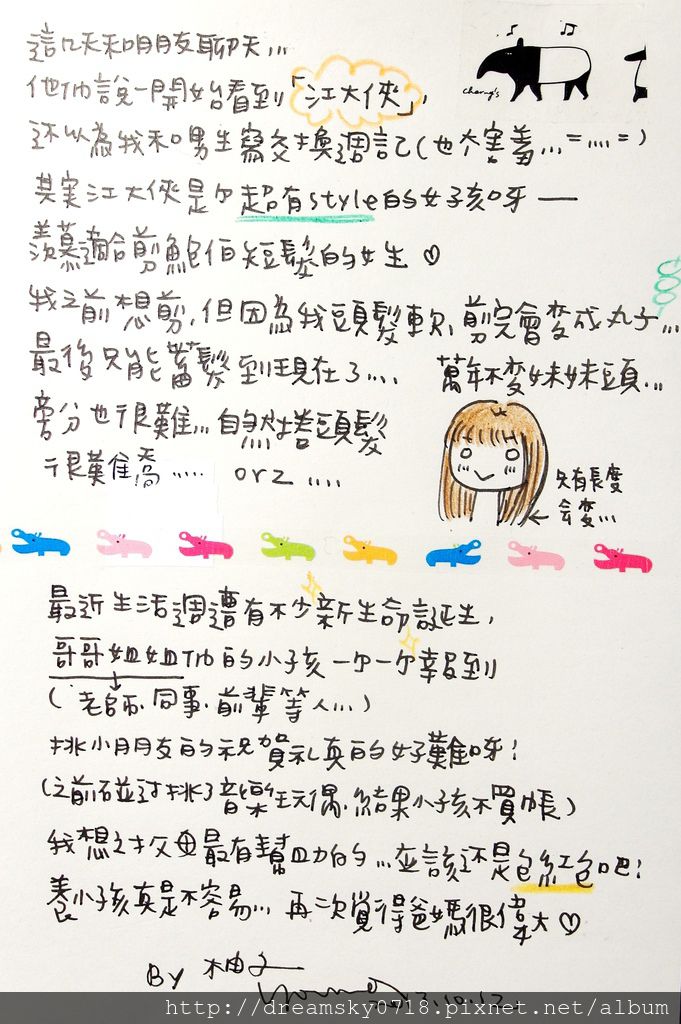 cherng's
這几天和朋友聊天...
他们說一開始看到「江大俠」,
还以為我和男生寫交換週記(也太害羞...=....=)
其実江大俠是个超有style的女孩呀—
羨慕適合剪鮑伯短髮的女生♡
我之前想剪,但因為我頭髮軟、剪完會变成丸子...
最後只能蓄髮到現在了....
萬年不变妹妹頭...
旁分也很難...自然捲頭髮
很難搞..... orz ....
只有長度
会变...
最近生活週遭有不少新生命誕生,
哥哥姐姐们的小孩一个一个報到
(老師、同事、前輩等人...)
挑小朋友的祝賀礼真的好難呀!
(之前碰过挑了音樂玩偶、結果小孩不買帳)
我想之於父母最有幫助的...应該还是包紅包吧!
養小孩真是不容易... 再次覺得爸媽很偉大♡
BY 柚子
http://dreamsky0718.pixnet.net/album